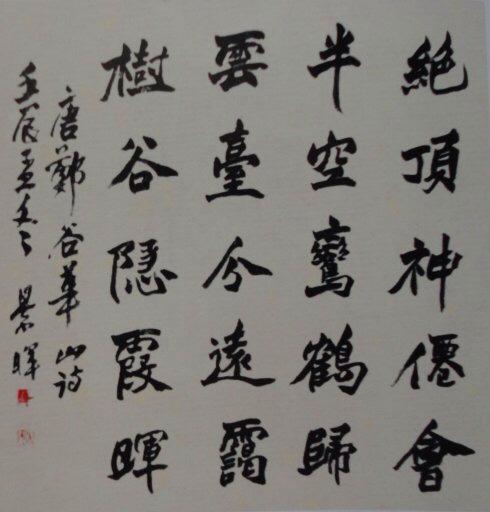 絶頂神僊會
半空鸞鶴歸
雲臺分遠靄
樹谷隱霞暉
唐鄭谷華山詩
壬辰孟冬 暉